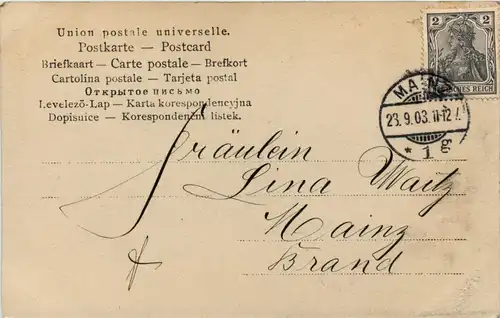 Union postale universelle.
Postkarte — Postcard
Briefkaart — Carte postale — Brefkort
Cartolina postale — Tarjeta postal
Открытое письмо
Levelező-Lap — Karta korespondencyjna
Dopisnice — Korespondenční lístek.
2 2
DEUTSCHES REICH
MAINZ
23.9.03.11-12
* 1 g
Fräulein
Lina Waitz
Mainz
Brand